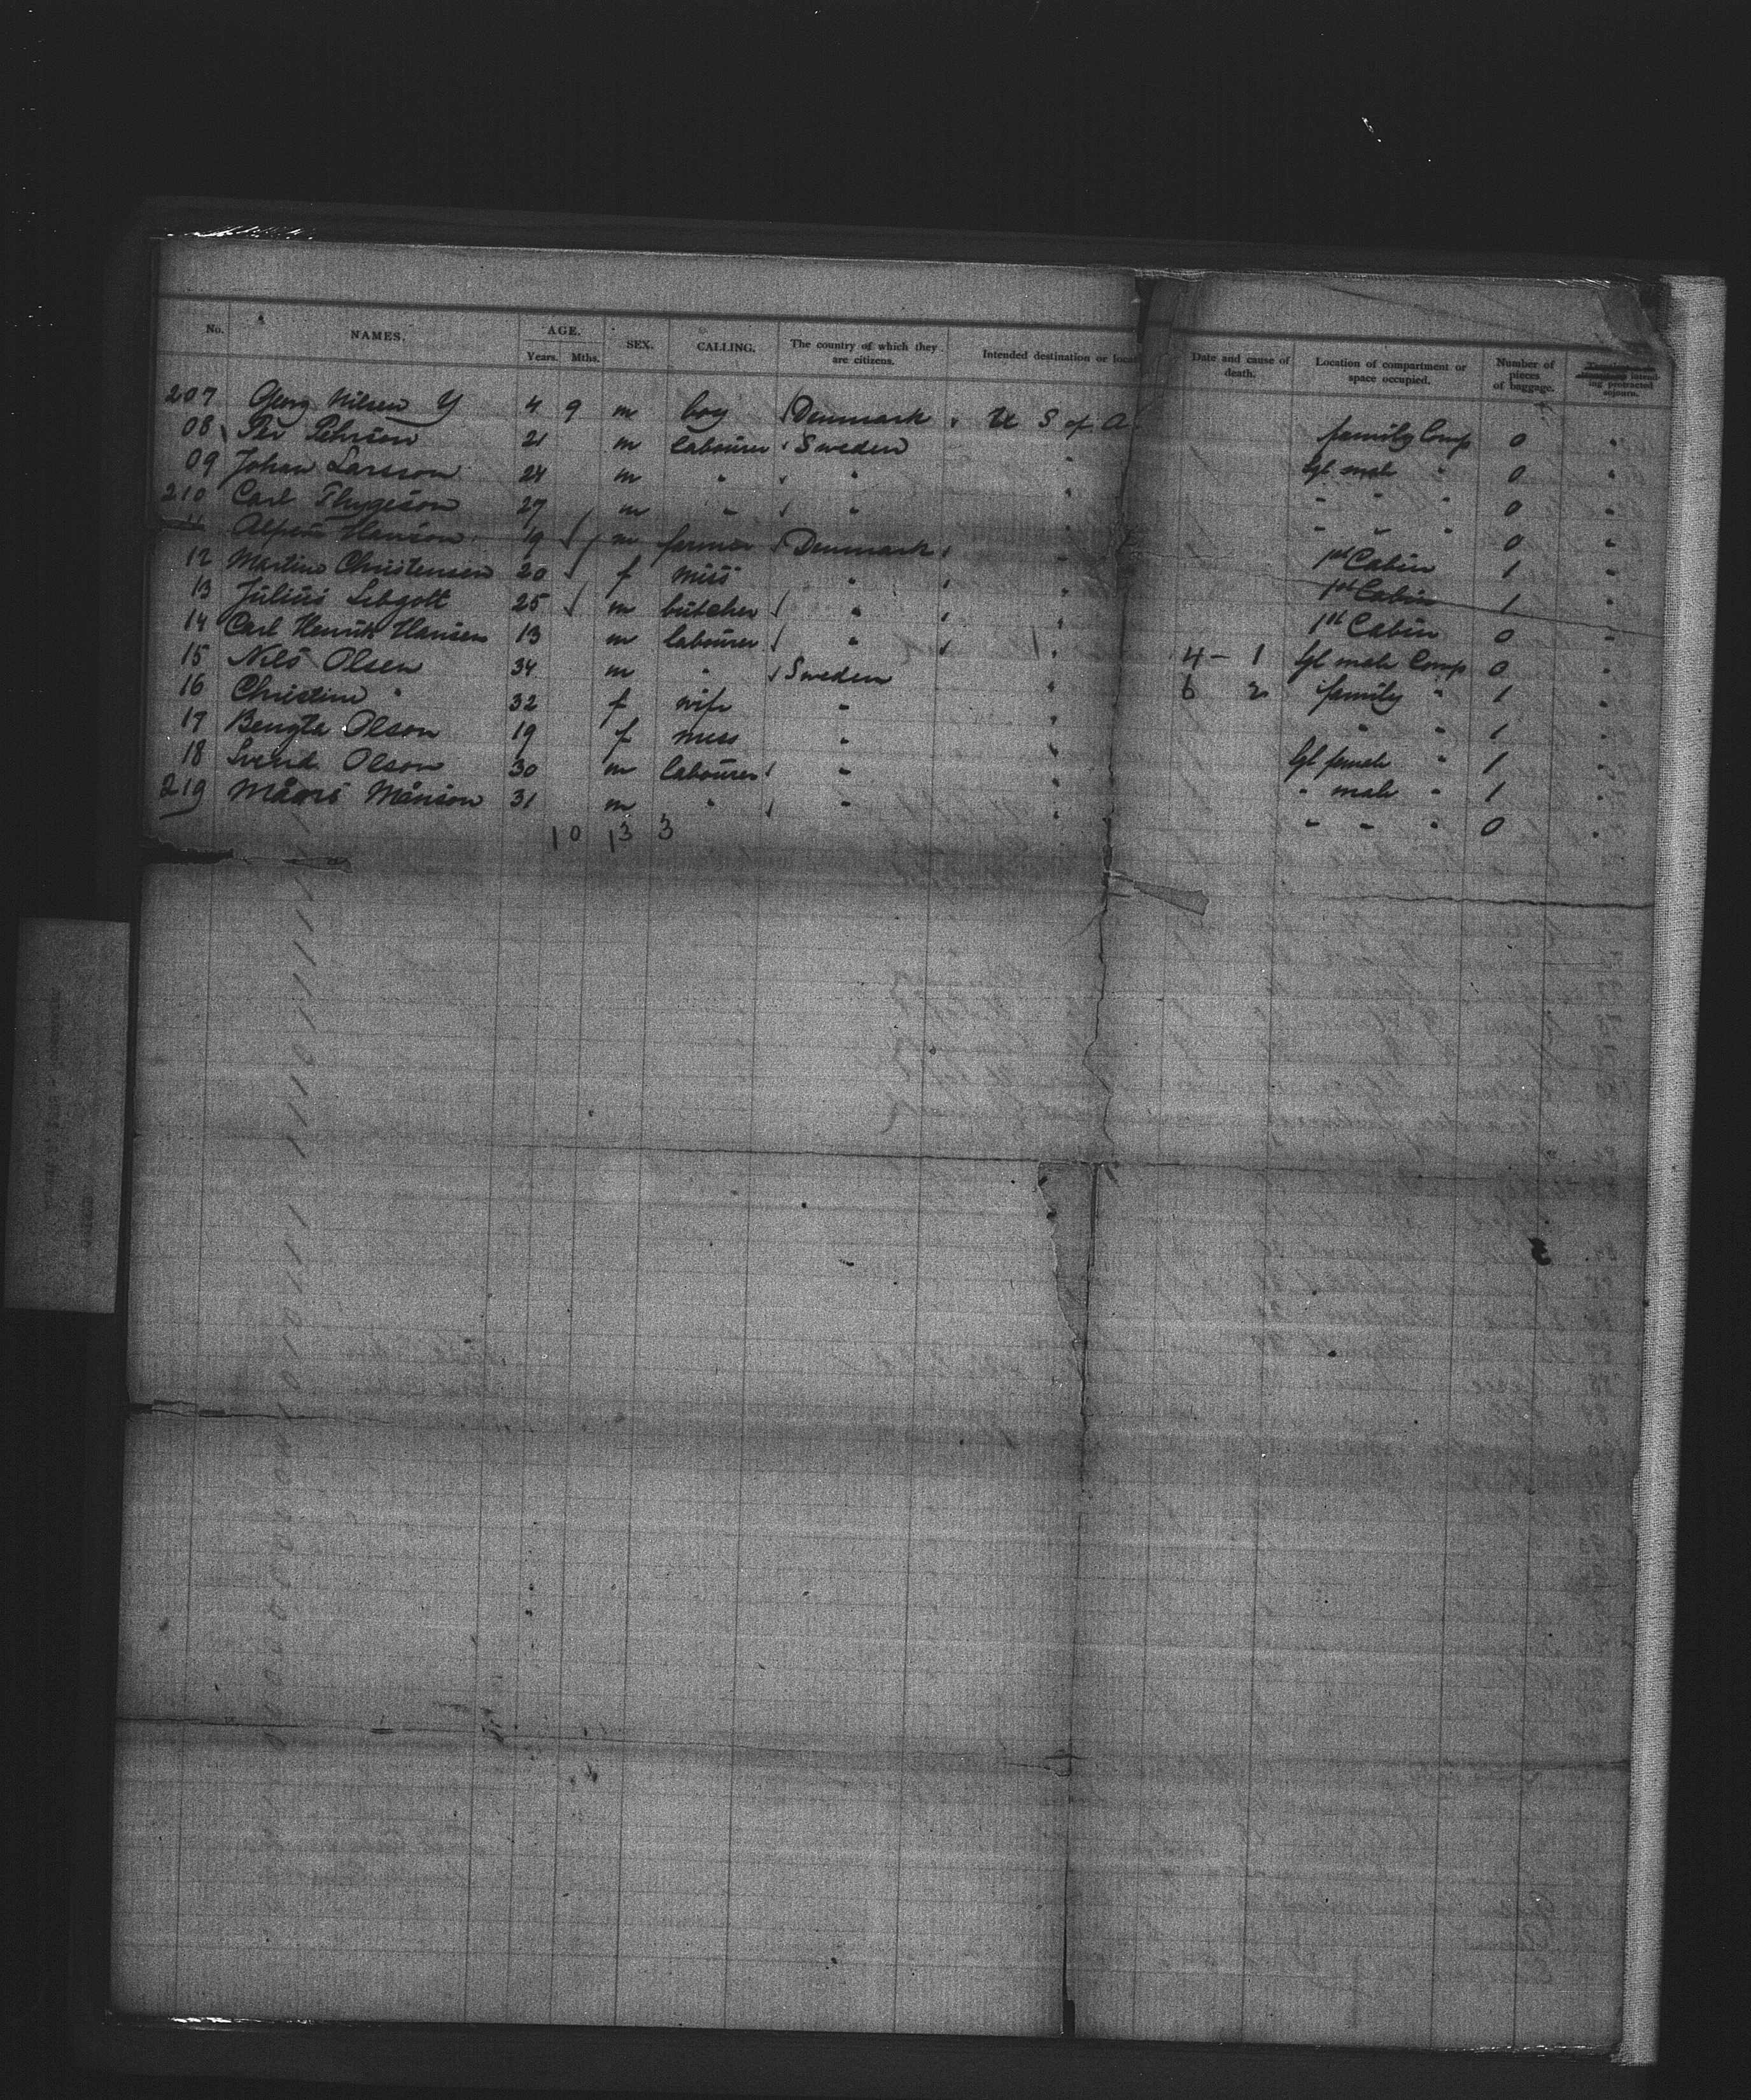 No. NAMES. AGE. Years. Mths. SEX. CALLING. The country of which they are citizens. Intended destination or Date and cause of death. Location of compartment or space occupied. Number of pieces of baggage. intending protracted sojourn.
207 Georg Nilsen 4 9 m boy Denmark U S of A. family Comp 0 "
08 Per Pehrson 21 m labourer Sweden " Sgl male " 0 "
09 Johan Larsson 24 m " " " " " " 0 "
210 Carl Thygeson 27 m " " " " " " 0 "
11 Hanson 19 m farmer Denmark " 1st Cabin 1 "
12 Martine Christensen 20 f miss " " 1st Cabin 1 "
13 Julius Libgott 25 m butcher " " 1st Cabin 0 "
14 Carl Henrik Hansen 13 m labourer " " 4 - 1 Sgl male Comp 0 "
15 Nils Olsen 34 m " Sweden " 6 2 family " 1 "
16 Christine " 32 f wife " " " " 1 "
17 Bengta Olson 19 f miss " " Sgl female " 1 "
18 Svend Olson 30 m labourer " " " male " 1 "
219 Måns Månson 31 m " " " " " " 0 "
10 13 3